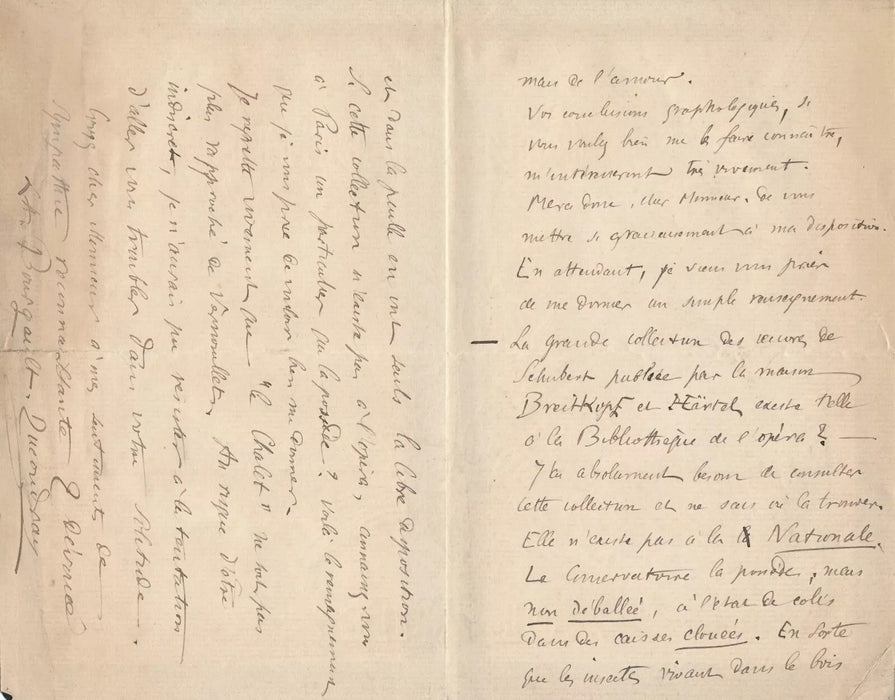 mais de l'amour.
Vos conclusions graphologiques, si
vous voulez bien me les faire connaître,
m'intéresseront très vivement.
Merci donc, cher Monsieur, de vous
mettre si gracieusement à ma disposition.
En attendant, je viens vous prier
de me donner un simple renseignement.
— La grande collection des œuvres de
Schubert publiée par la maison
Breitkopf et Härtel existe t'elle
à la Bibliothèque de l'opéra? —
J'ai absolument besoin de consulter
cette collection et ne sais où la trouver.
Elle n'existe pas à la Nationale.
Le Conservatoire la possède, mais
non déballée, à l'état de colis
dans des caisses clouées. En sorte
que les insectes vivant dans le bois
et dans la paille en ont seuls la libre disposition.
Si cette collection n'existe pas à l'opéra, connaissez vous
à Paris un particulier qui la possède? Voilà le renseignement
que je vous prie de vouloir bien me donner.
Je regrette vivement que "le Chalet" ne soit pas
plus rapproché de Vernouillet. Au risque d'être
indiscret, je n'aurais pu résister à la tentation
d'aller vous troubler dans votre solitude.
Croyez cher Monsieur à mes sentiments de
sympathie reconnaissante & dévouée
L.A. Bourgault-Ducoudray